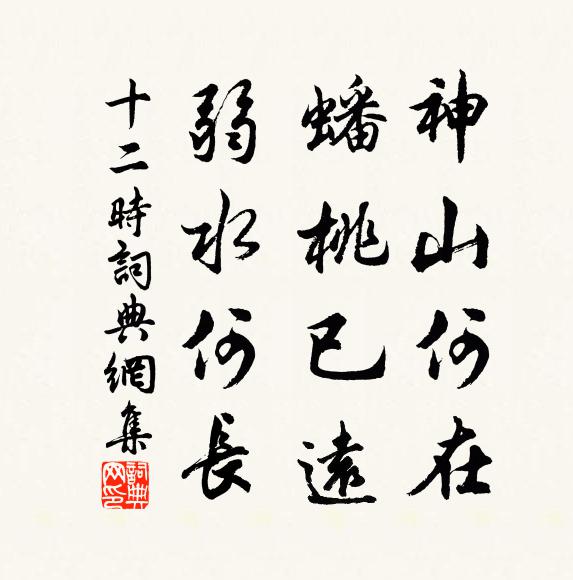 神山何在
蟠桃已遠
弱水何長
十二時詞典網集
詞典
网印